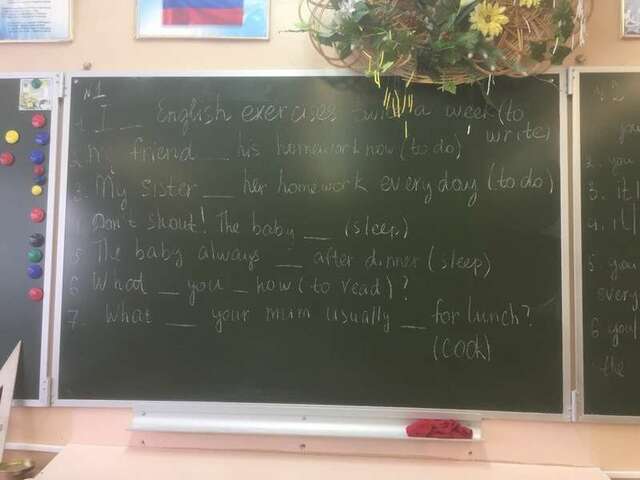 №1
1. I __ English exercises twice a week (to write)
2. My friend __ his homework now (to do)
3. My sister __ her homework every day (to do)
Don't shout! The baby __ (sleep)
5. The baby always __ after dinner (sleep)
6 What __ you __ now (to read)?
7. What __ your mum usually __ for lunch?
(cook)
2. you
3. it
4. it
5. you
every
6 you
the